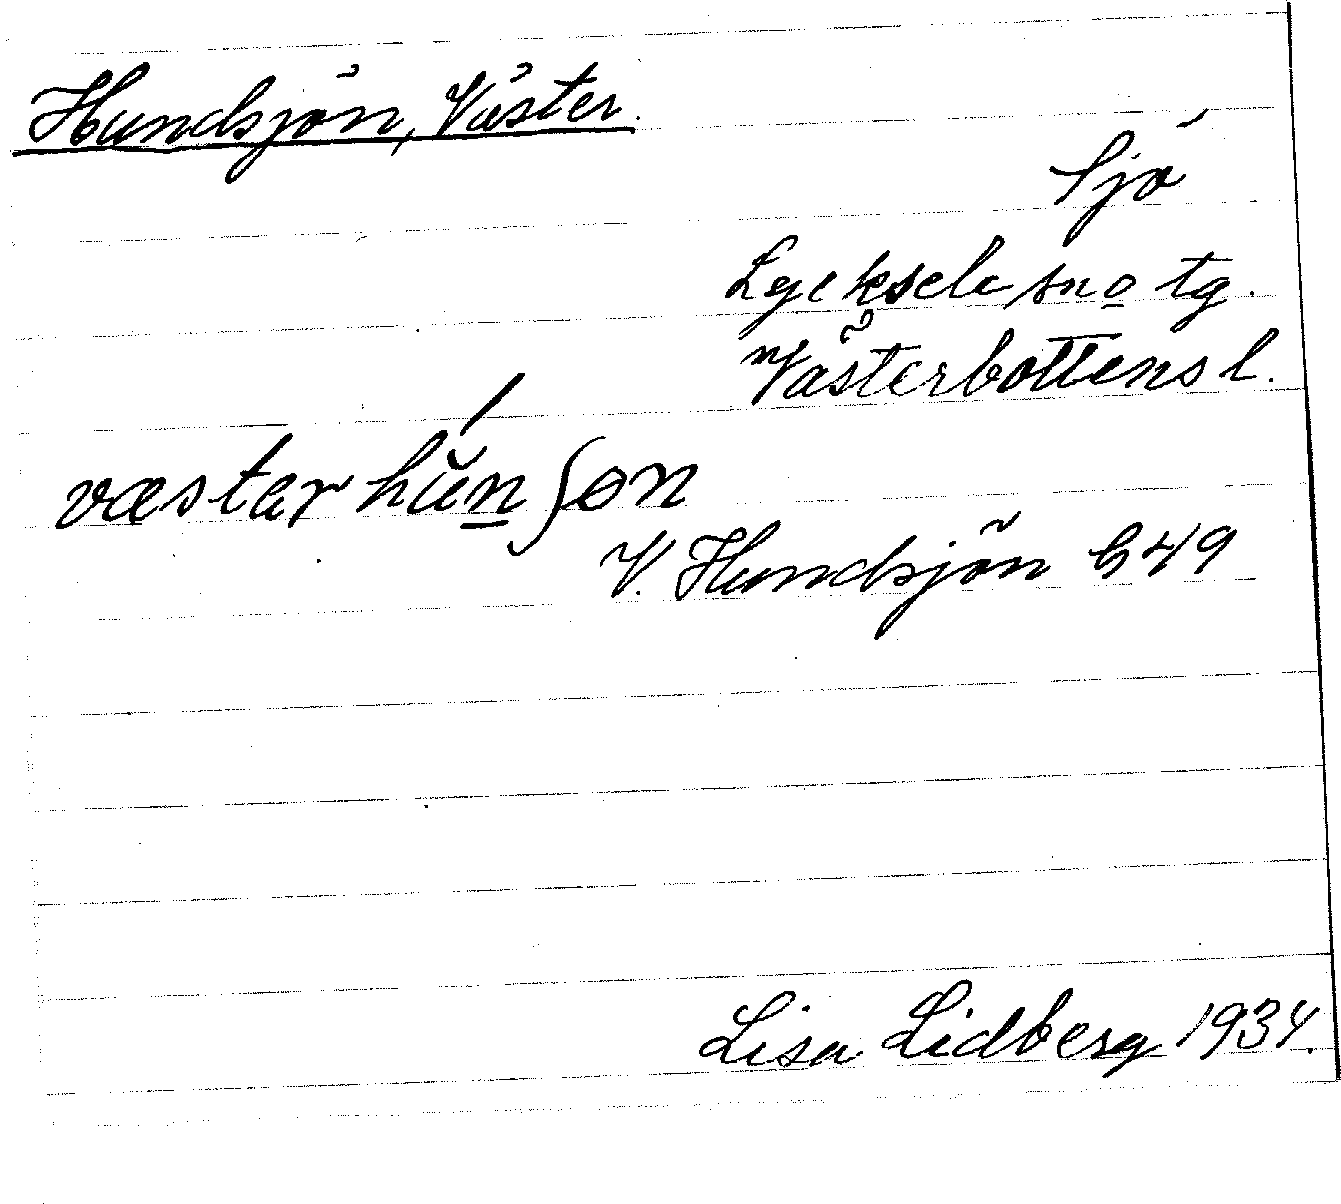 Hundsjön, Väster.
Sjö
Lycksele sno tg.
Västerbottens l.
væstar hŭn̲ʃøn
V. Hundsjön G 49
Lisa Lidberg 1934.